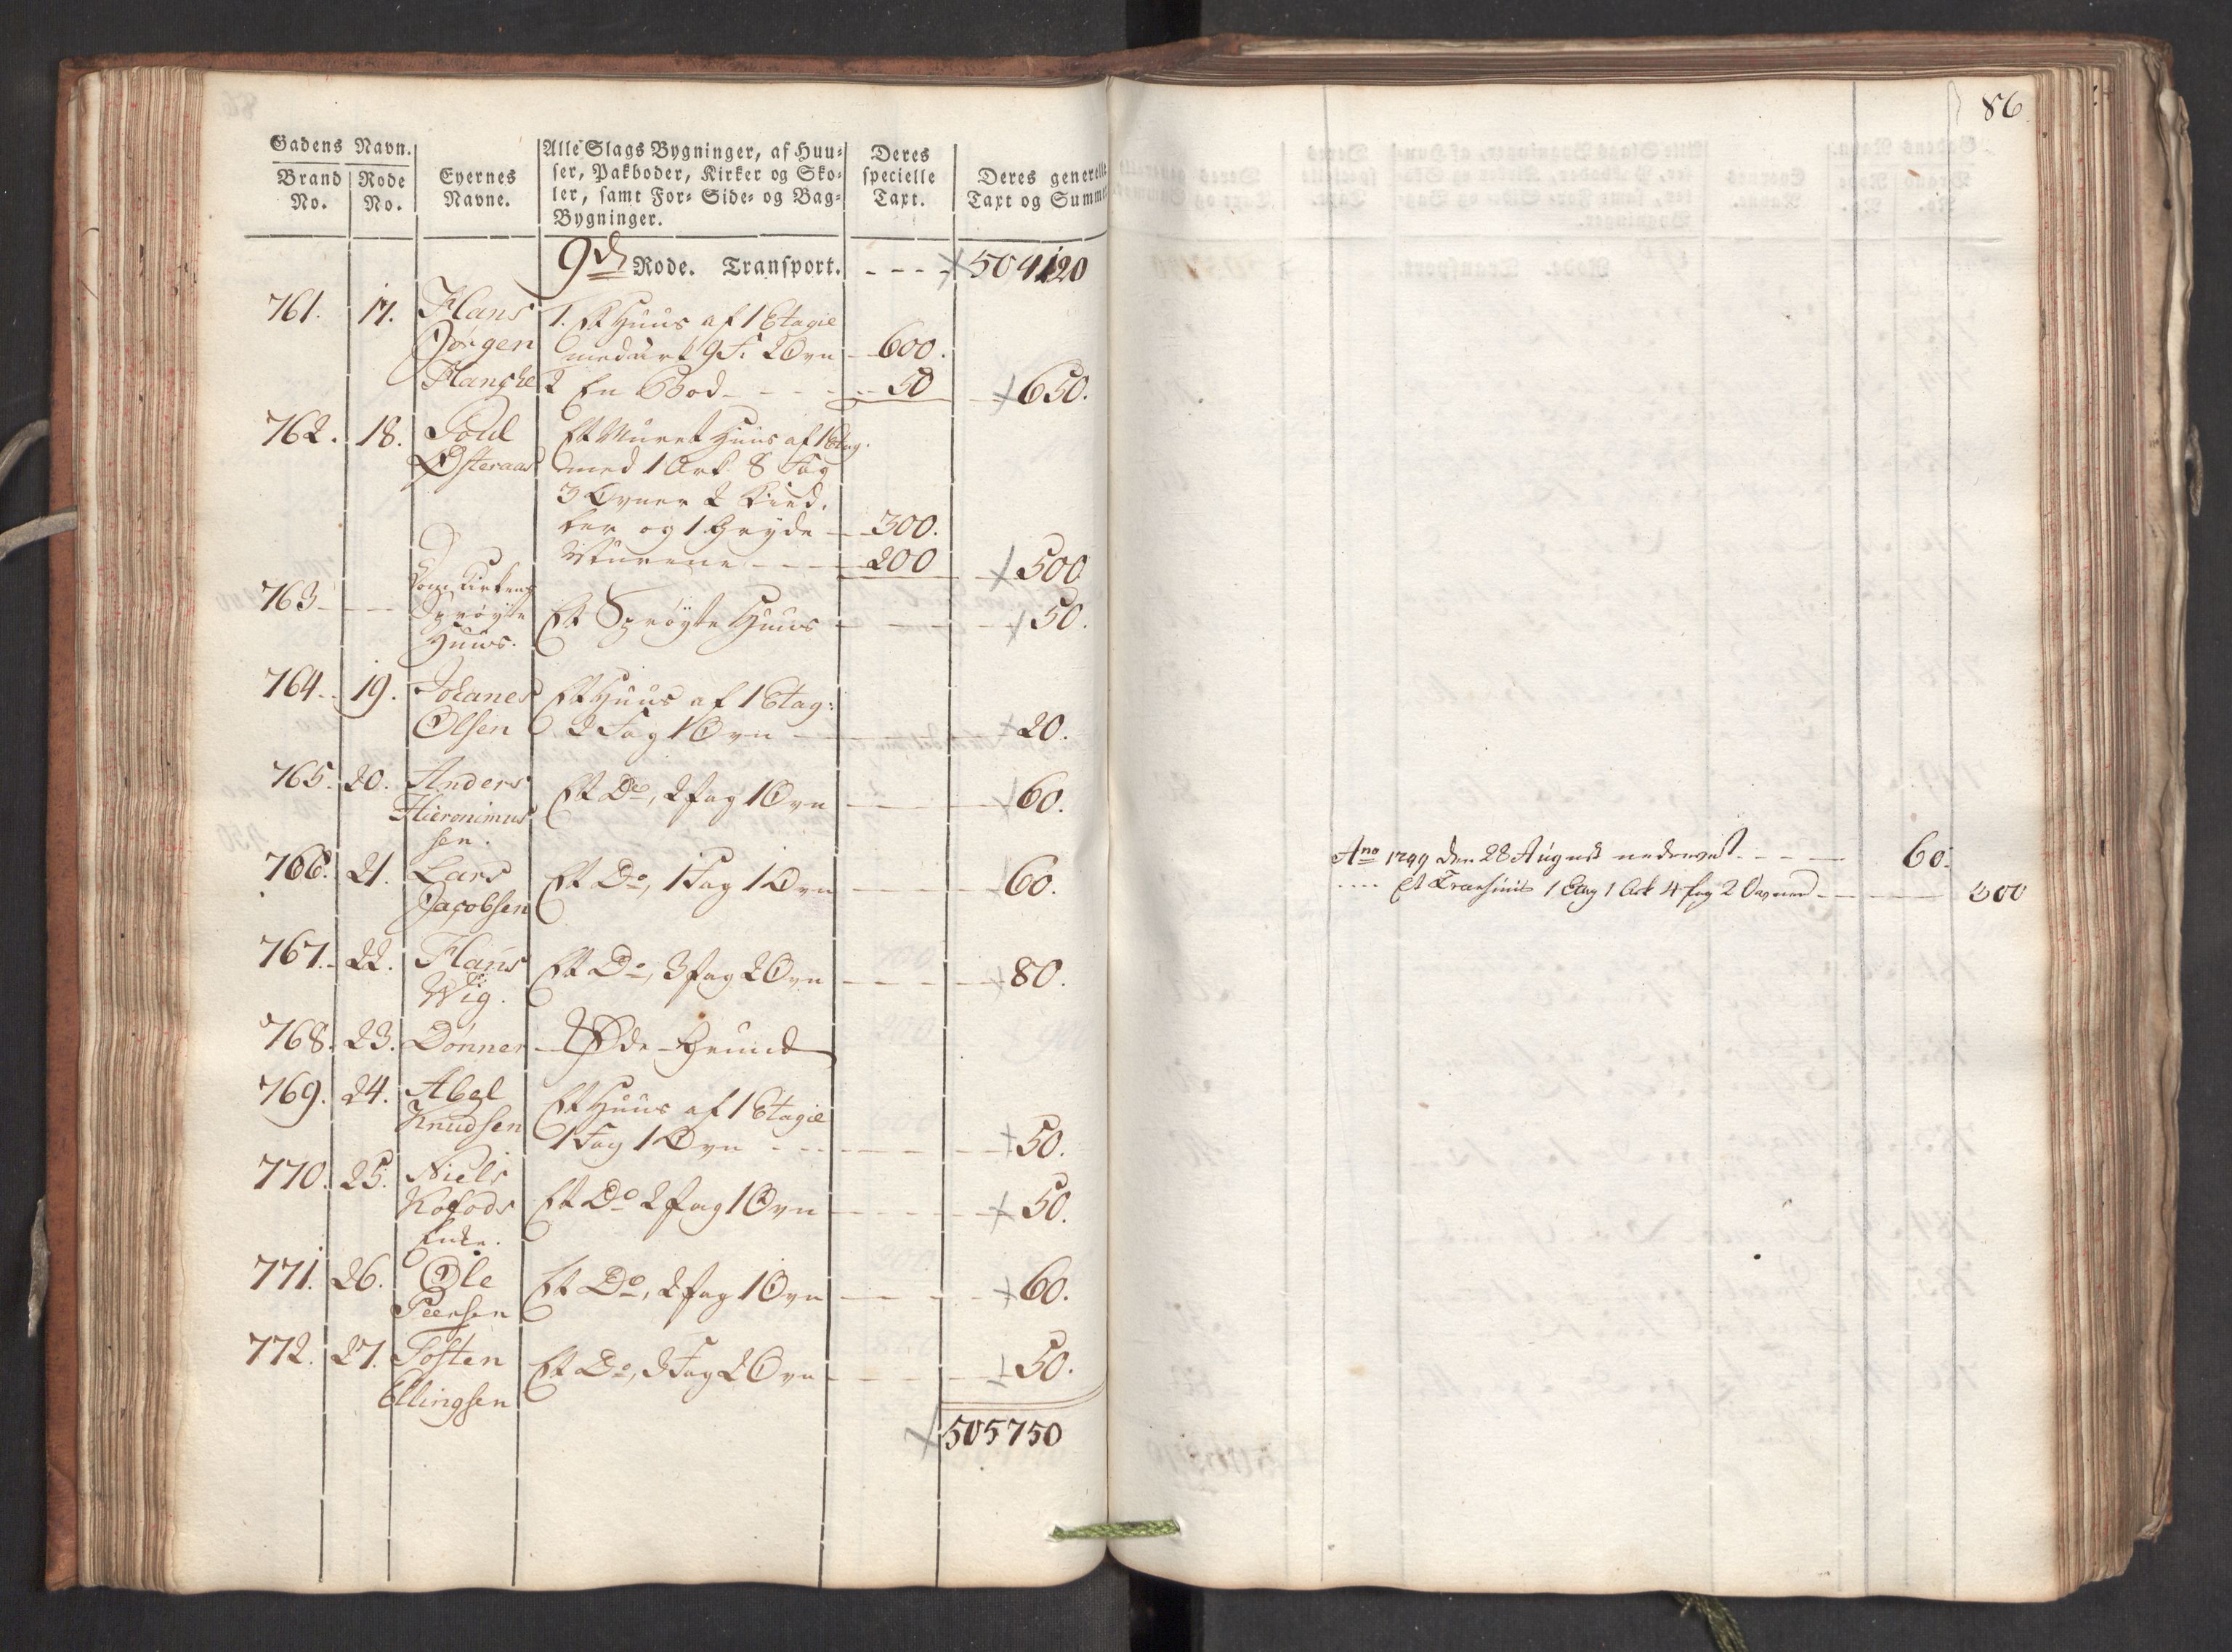 Gadens Navn.
Brand No. Rode No. Eyernes Navne.
Alle Slags Bygninger, af Huu-
ser, Pakboder, Kirker og Sko-
ler, samt For- Side- og Bag-
Bygninger.
Deres specielle Taxt.
Deres generelle Taxt og Summ
9de Rode. Transport. 504120
761. 17. Hans 1. Et Huus af 1 Etagie
Jørgen 9 F. 2 Ovn 600.
2 En Bod 50 650.
762. 18. Poul Et Muret Huus af 1 Etag.
Østeraas med 1 Ark 8 Fag
3 Ovner 2
og 1 Gryde 300.
Murene 200 500
Dom Kirkens
763 Sprøyte Et Sprøyte Huus 50.
Huus.
764. 19. Johanes Et Huus af 1 Etag:
Olsen 2 Fag 1 Ovn 20.
765. 20. Anders Et Do, 2 fag 1 Ovn 60.
Hieronimus
sen.
766. 21. Lars Et Do, 1 Fag 1 Ovn 60.
Jacobsen
767. 22. Hans Et Do, 3 fag 2 Ovn 80.
Wig.
768. 23. Dønner Øde-Grund
769. 24. Abel Et Huus af 1 Etagie
Knudsen 1 Fag 1 Ovn 50.
770. 25. Niels
Kofods Et Do 2 fag 1 Ovn 50.
Enke.
771. 26. Ole Et Do, 2 fag 1 Ovn 60.
Peersen
772. 27. Tosten Et Do, 3 Fag 2 Ovn 50.
Ellingsen
505750
86.
Ano 1799 den 28 August 60.
Et 1 Etag 1 Ark 4 fag 2 Ovner 300